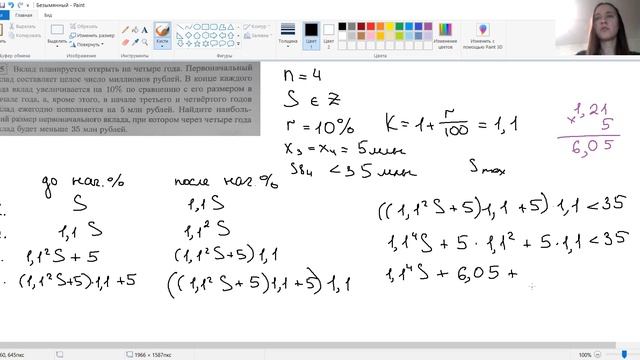 Безымянный - Paint
Вид
Вырезать
Копировать
Обрезать
Изменить размер
Повернуть
Контур
Заливка
Толщина
Цвет 1
Цвет 2
Изменение цветов
Изменить с помощью Paint 3D
Буфер обмена
Изображение
Инструменты
Фигуры
Цвета
Вклад планируется открыть на четыре года. Первоначальный
вклад составляет целое число миллионов рублей. В конце каждого
года вклад увеличивается на 10% по сравнению с его размером в
начале года, а, кроме этого, в начале третьего и четвёртого годов
вклад ежегодно пополняется на 5 млн рублей. Найдите наиболь-
ший размер первоначального вклада, при котором через четыре года
вклад будет меньше 35 млн рублей.
n = 4
S ∈ Z
r = 10% K = 1 + r/100 = 1,1
x₃ = x₄ = 5 млн
Sв₄ < 35 млн Smax
1,21
× 5
6,05
до нач.% после нач.%
S 1,1S
1,1S 1,1²S
1,1²S + 5 (1,1²S+5)1,1
(1,1²S+5)·1,1+5 ((1,1²S+5)1,1+5)1,1
((1,1²S+5)1,1+5)1,1<35
1,1⁴S + 5·1,1² + 5·1,1<35
1,1⁴S + 6,05 +
60, 645пкс
1966 × 1587пкс
100%